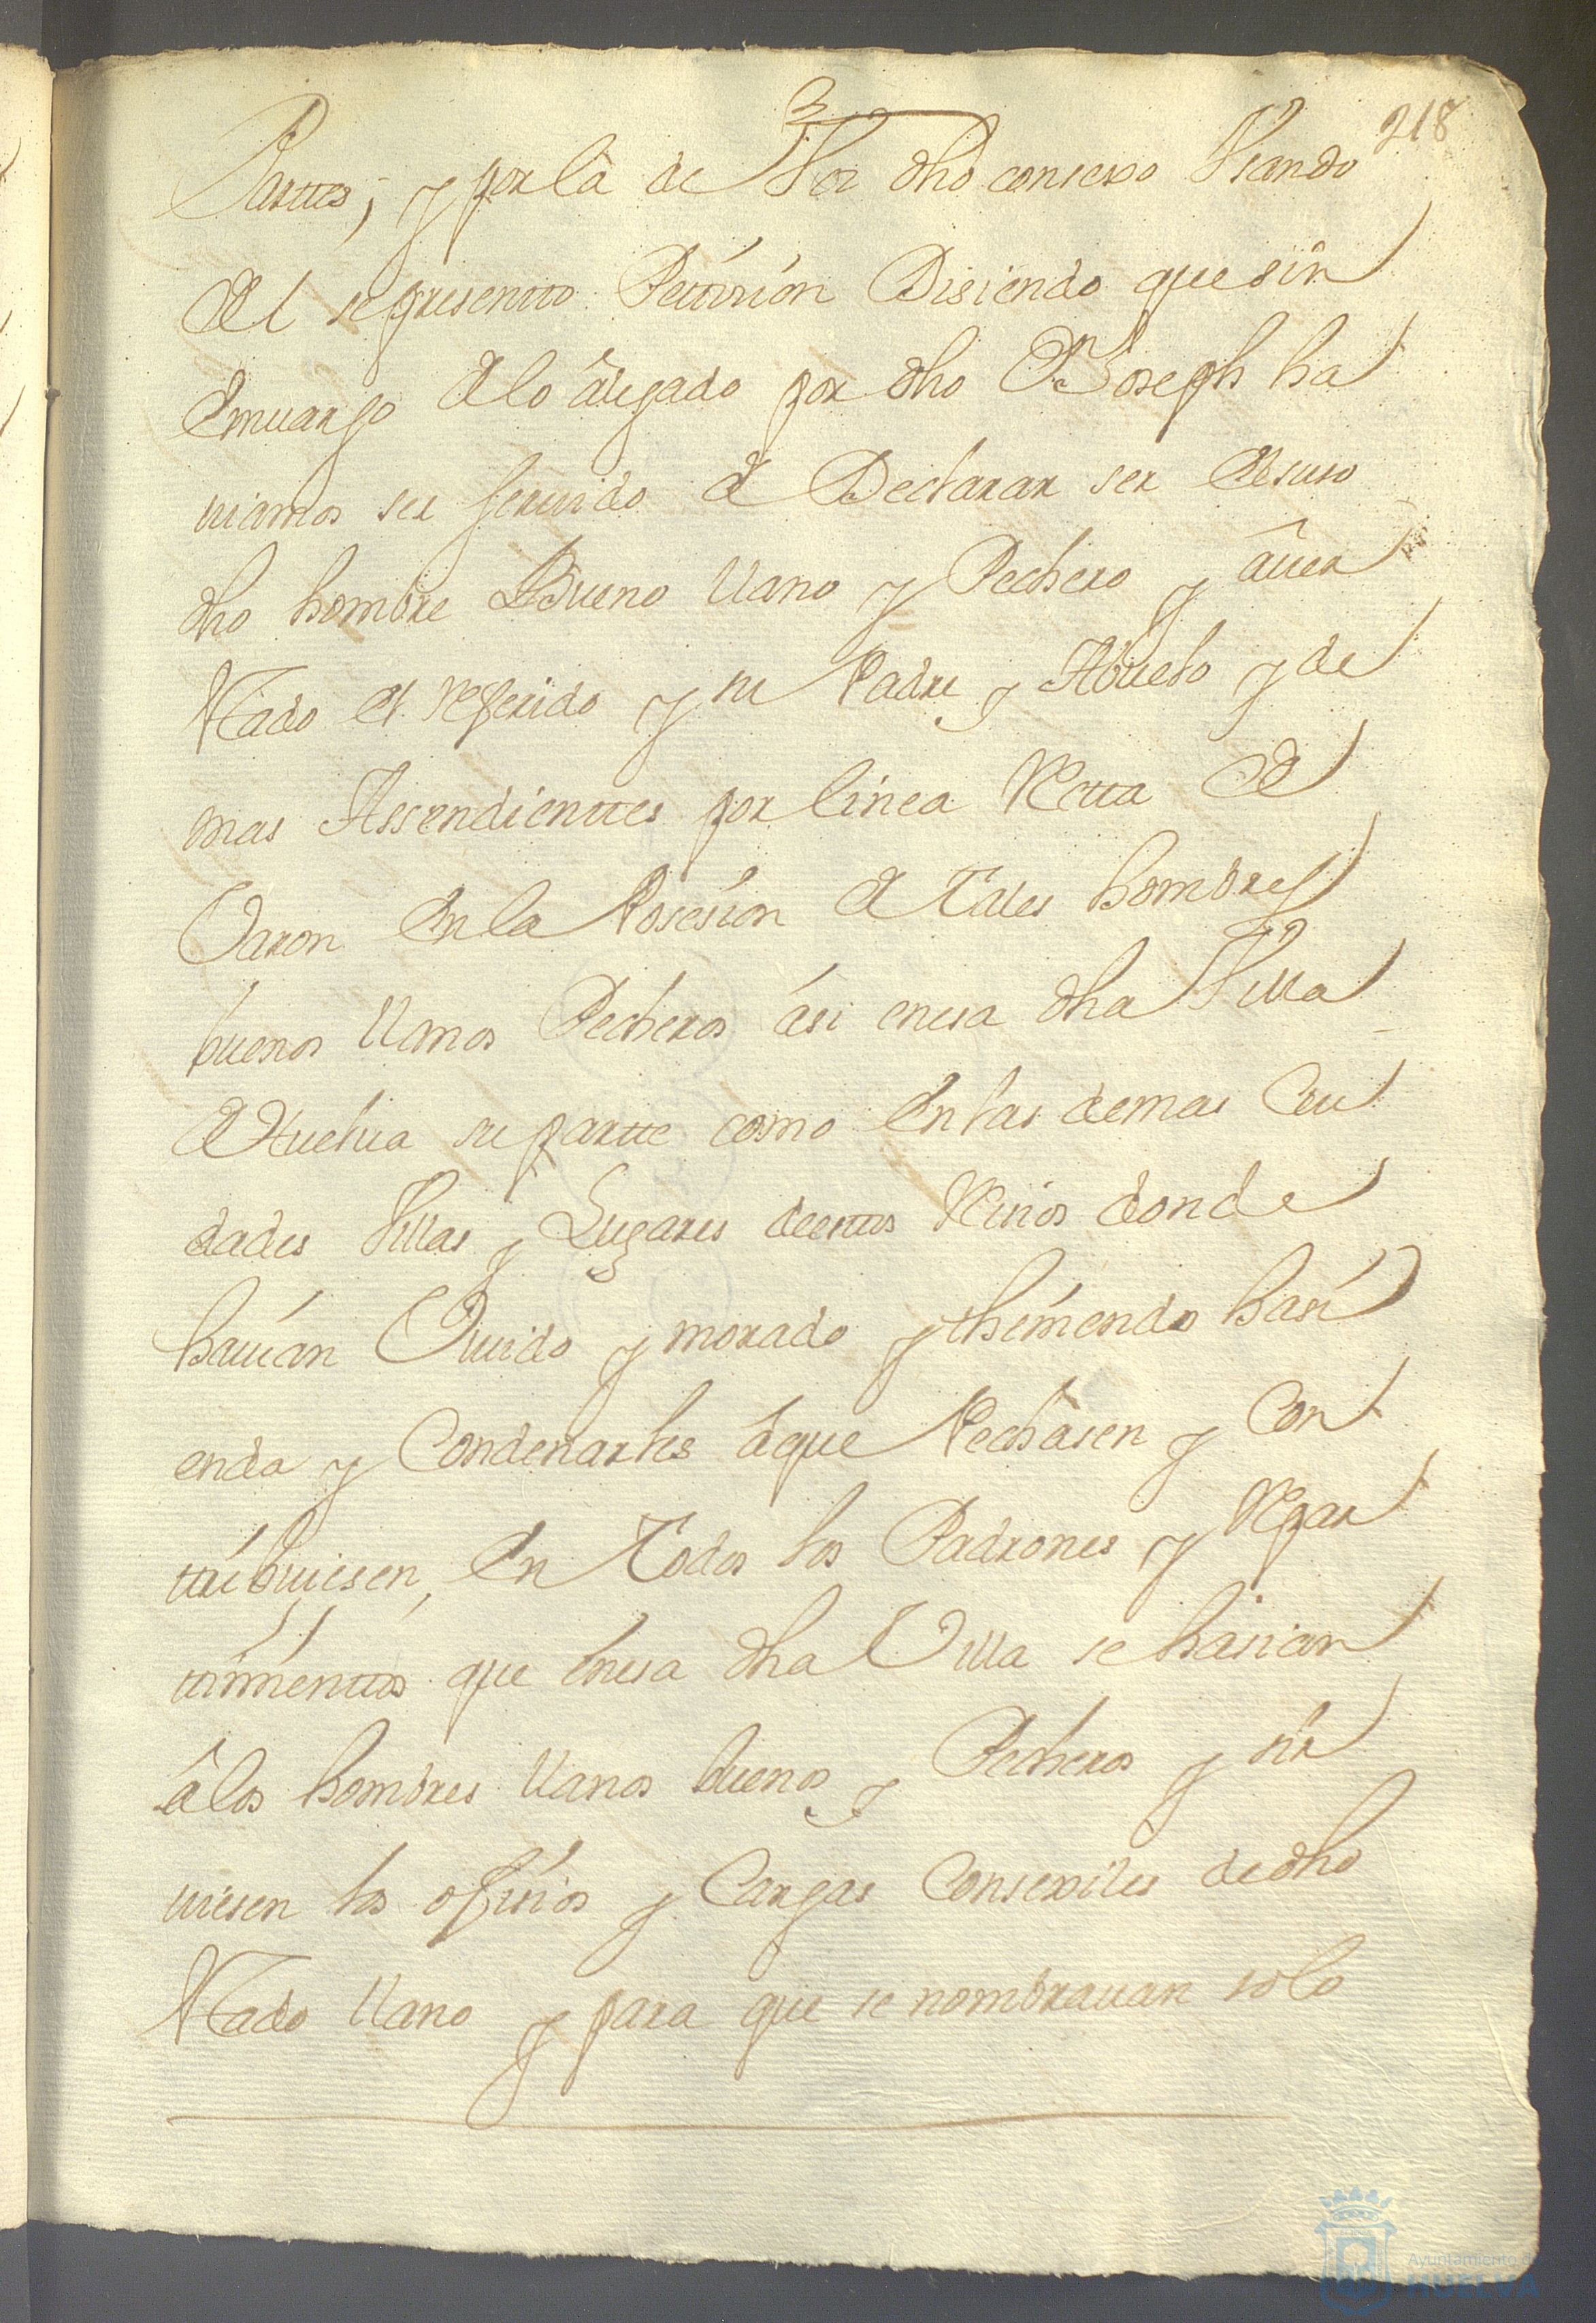 218
Parttes; y por la de Vos dho consexo Vsando
del se presentto Pettision Disiendo que sin
Emuargo de lo âlegado por dho Dn Joseph ha
uiamos ser seruido de Declarar ser El suso
dho hombre Bueno llano y Pechero y âuer
Estado el Referido y su Padre y Abuelo y de
mas Assendienttes por linea Retta de
Varon en la Posesion de Tales hombres
buenos llanos Pecheros ási en esa dha Villa
de Huelua su partte como en las demas Ciu
dades Villas y Lugares de esttos Reinos donde
hauían Viuido y morado y theniendo hasi
enda y Condenarles âque Pechasen y Con
ttribuiesen en Todos los Padrones y Repar
ttimienttos que en esa dha Villa se hasian
â los hombres llanos buenos y Pecheros y sir
uiesen los ofisios y Cargas Consexiles de dho
Estado llano y para que se nombrauan solo
Ayuntamiento de
HUELVA